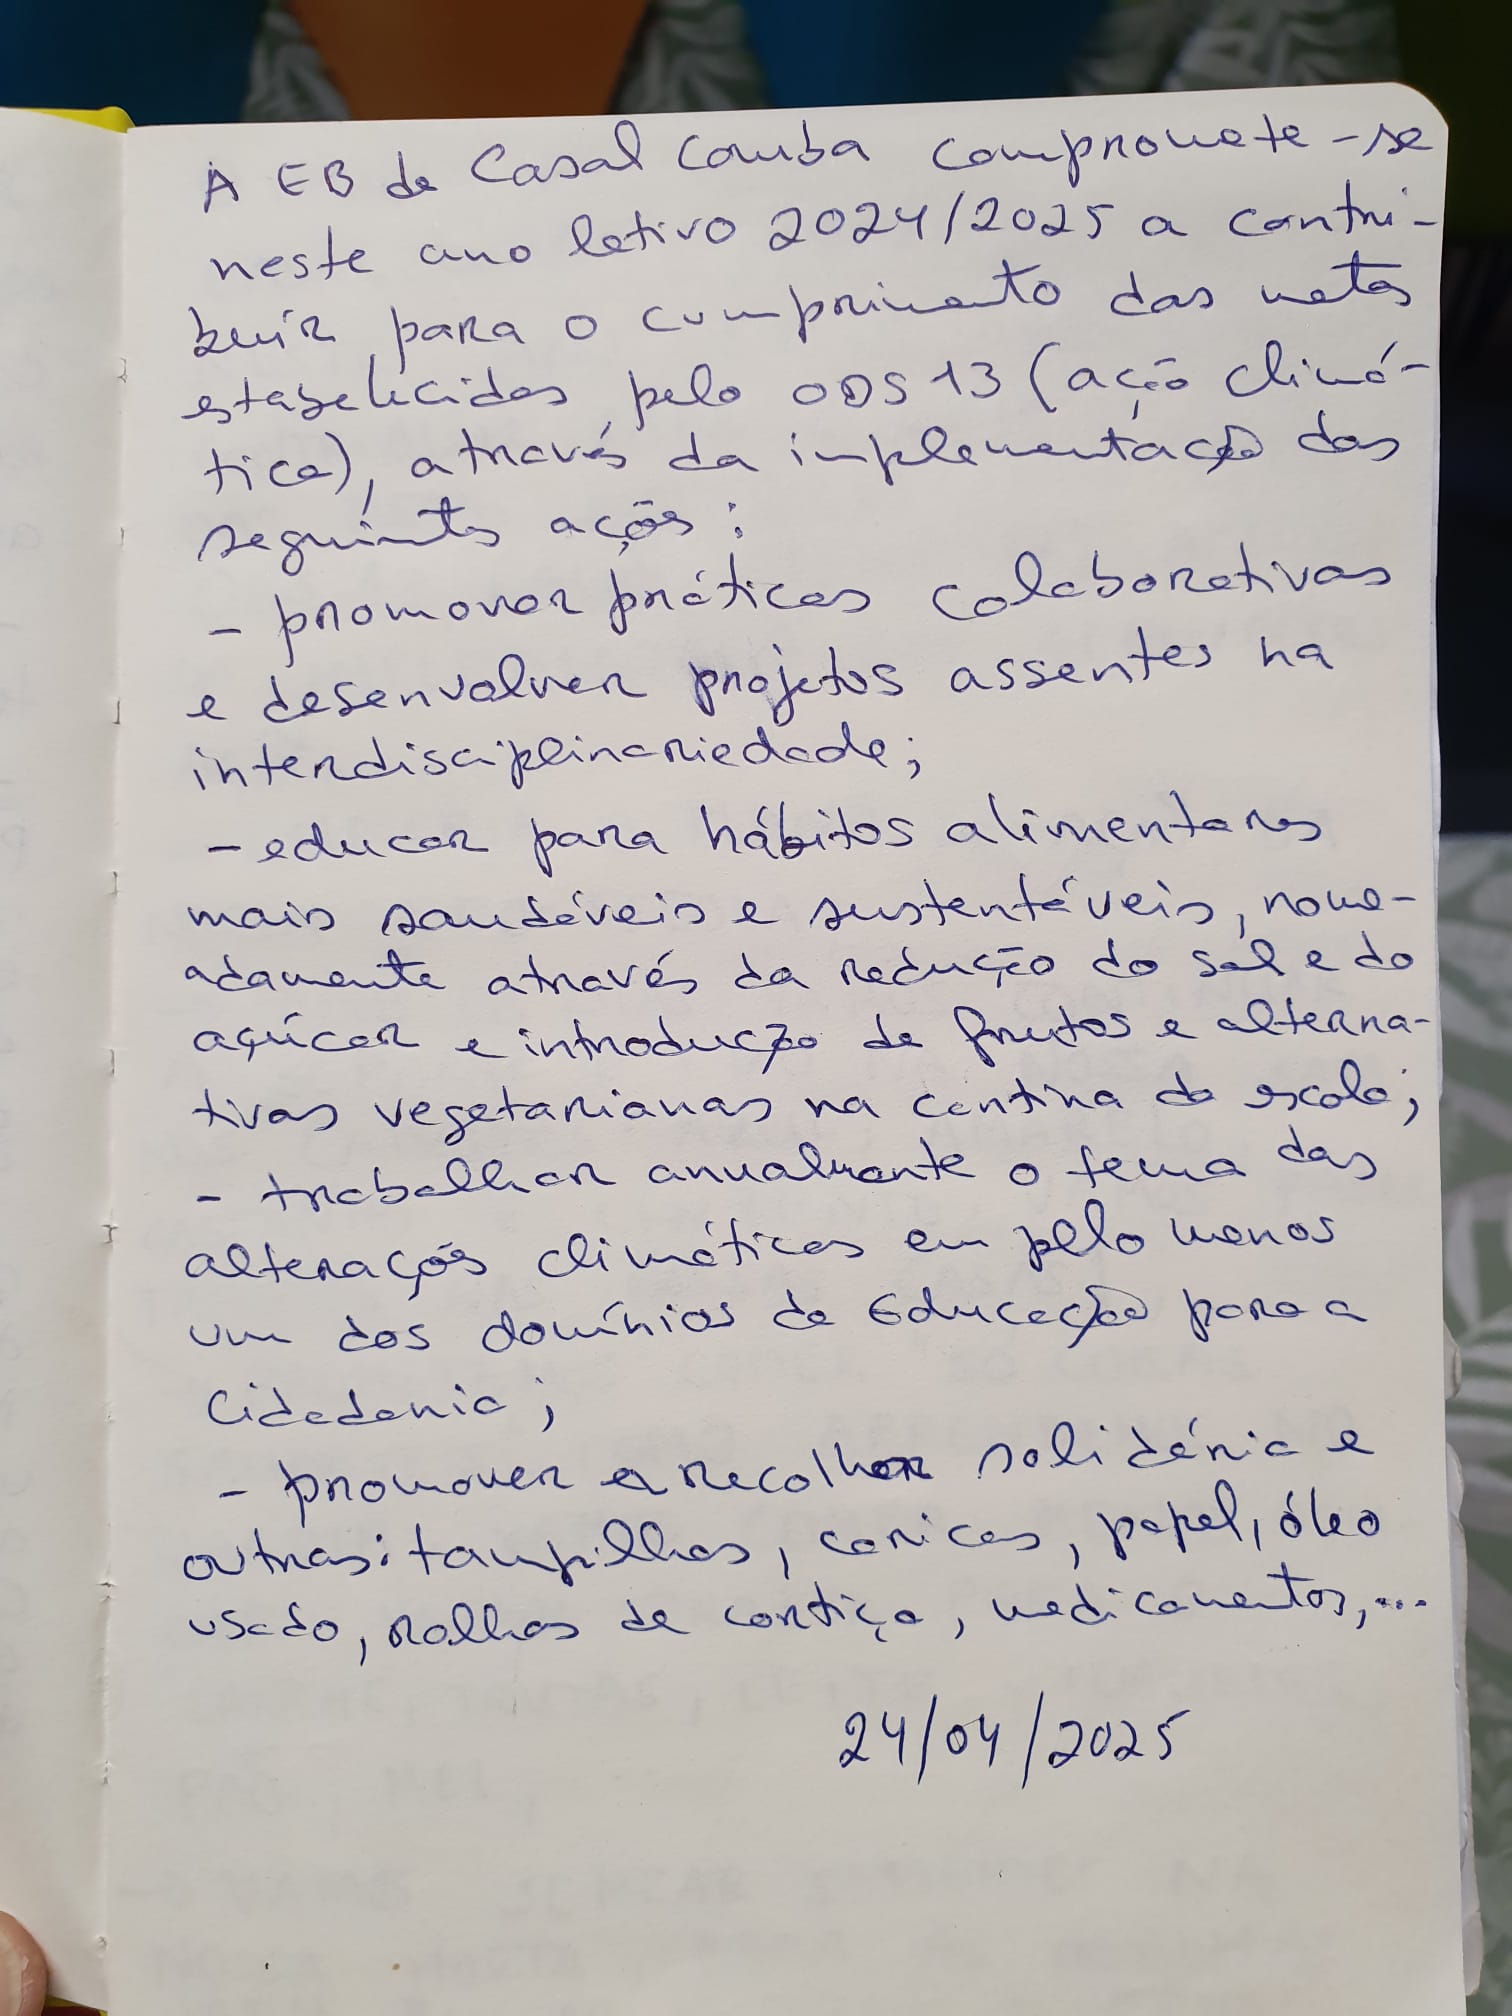 A EB de Casal Comba compromete-se
neste ano letivo 2024/2025 a contri-
buir para o cumprimento das metas
estabelecidas pelo ODS 13 (ação climá-
tica), através da implementação das
seguintes ações:
- promover práticas colaborativas
e desenvolver projetos assentes na
interdisciplinariedade;
- educar para hábitos alimentares
mais saudáveis e sustentáveis, nome-
adamente através da redução do sal e do
açúcar e introdução de frutos e alterna-
tivas vegetarianas na cantina da escola;
- trabalhar anualmente o tema das
alterações climáticas em pelo menos
um dos domínios de Educação para a
Cidadania;
- promover a recolher solidária e
outras: tampilhas, caricas, papel, óleo
usado, rolhas de cortiça, medicamentos,...
24/04/2025